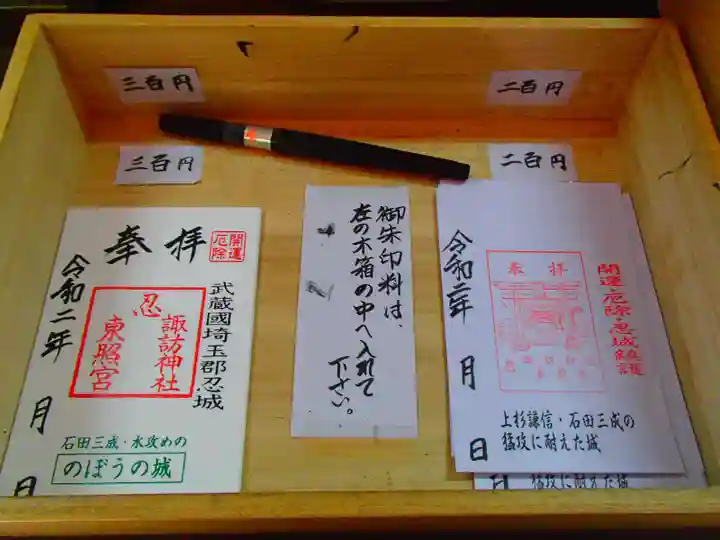 三百円
二百円
三百円
二百円
奉拝
開運
厄除
武蔵國埼玉郡忍城
忍
諏訪神社
東照宮
令和二年 月 日
石田三成・水攻めの
のぼうの城
御朱印料は、
左の木箱の中へ入れて
下さい。
奉拝
開運・厄除・忍城鎮護
令和二年 月 日
上杉謙信・石田三成の
猛攻に耐えた城
日
猛攻に耐えた城